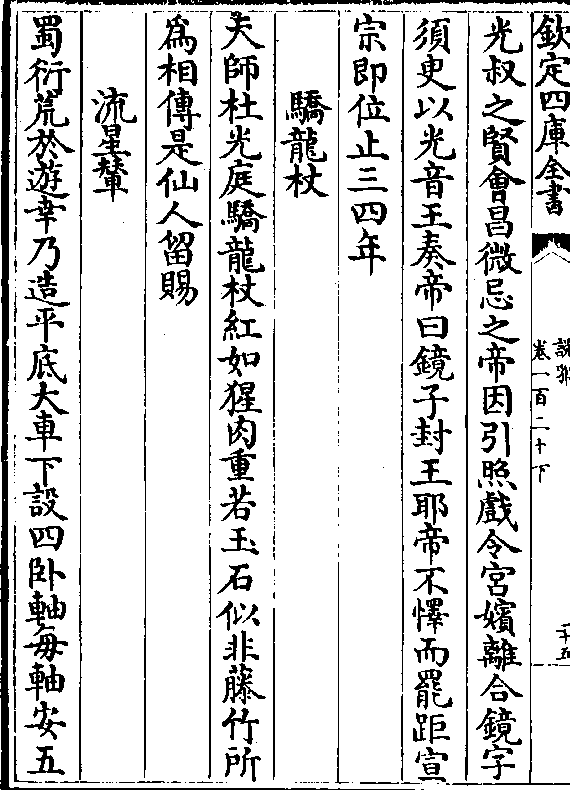 欽定四庫全書
說郛
卷一百二十下
二十五
光叔之賢會昌微忌之帝因引照戲令宮嬪離合鏡字
須叓以光音王奏帝曰鏡子封王耶帝不懌而罷距宣
宗即位止三四年
驕龍杖
天師杜光庭驕龍杖紅如猩肉重若玉石似非藤竹所
為相傳是仙人留賜
流星輦
蜀衍荒於遊幸乃造平底大車下設四卧軸每軸安五